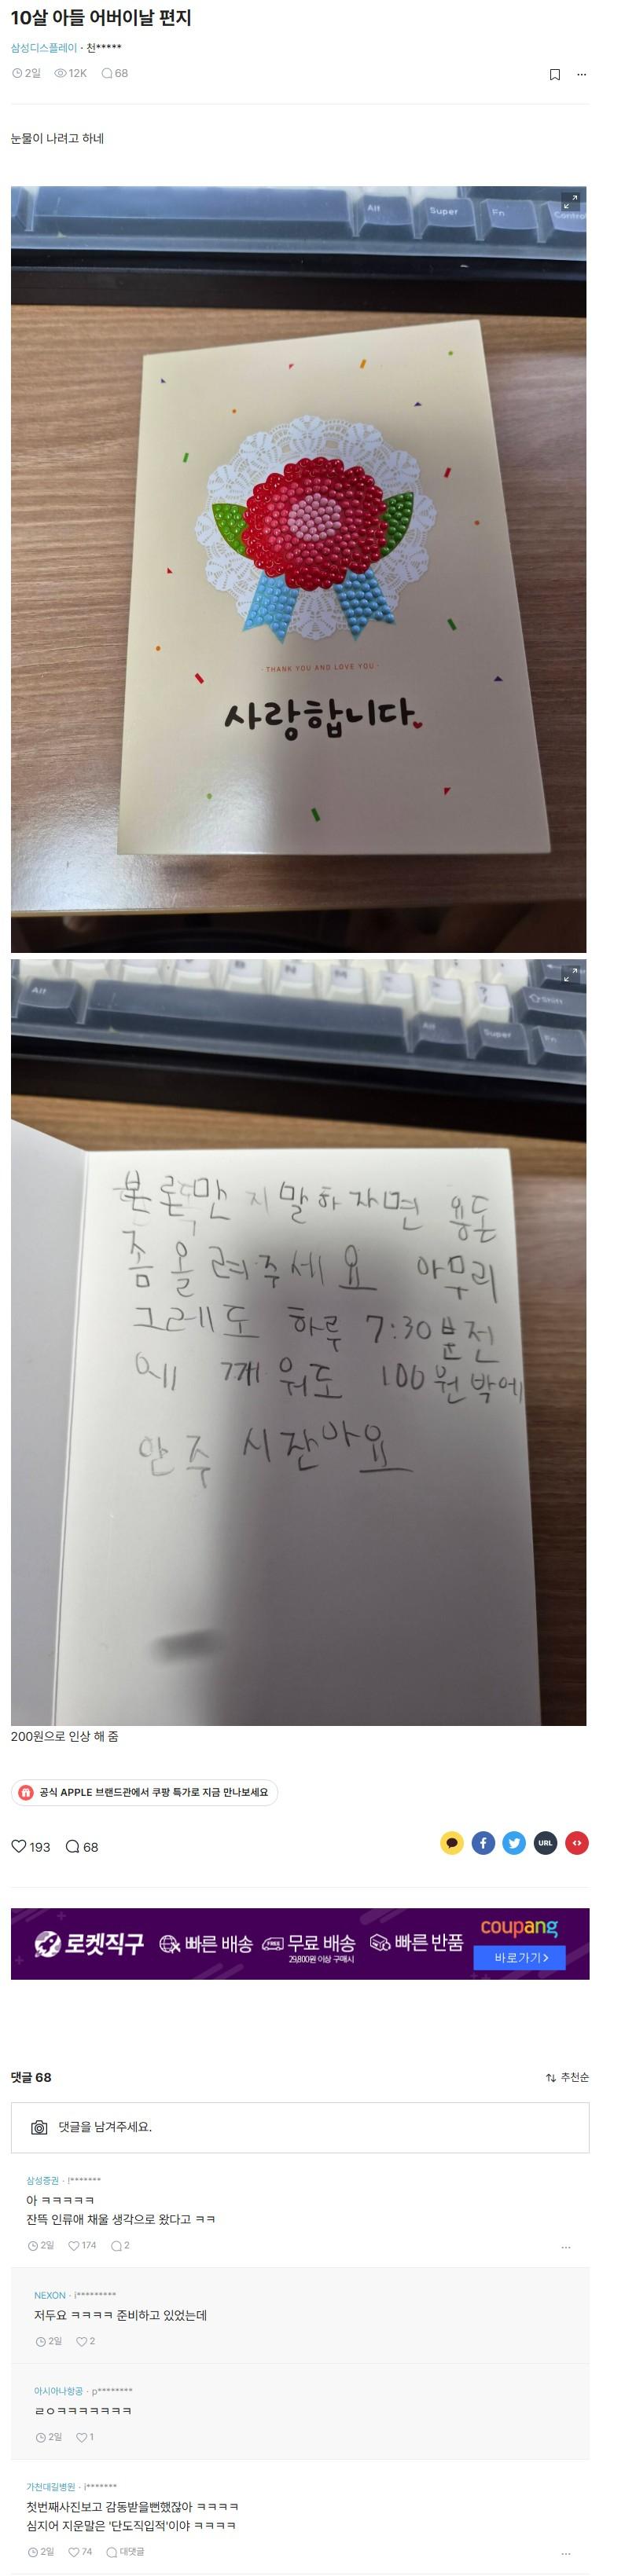 10살 아들 어버이날 편지
삼성디스플레이 · 천*****
2일 12K 68
눈물이 나려고 하네
Alt Super Fn Control
THANK YOU AND LOVE YOU
사랑합니다
Alt B N M ? Shift
Alt Super Fn
본론만 지말하자면 용돈
좀 올려주세요 아무리
그레도 하루 7:30분전
에 깨워도 100원박에
안주시잔아요
200원으로 인상 해 줌
공식 APPLE 브랜드관에서 쿠팡 특가로 지금 만나보세요
193 68
URL
로켓직구 빠른 배송 FREE 무료 배송 빠른 반품 coupang
29,800원 이상 구매시
바로가기 >
댓글 68 추천순
댓글을 남겨주세요.
삼성증권 · i*******
아 ㅋㅋㅋㅋㅋ
잔뜩 인류애 채울 생각으로 왔다고 ㅋㅋ
2일 174 2
NEXON · i*********
저두요 ㅋㅋㅋㅋ 준비하고 있었는데
2일 2
아시아나항공 · p********
ㄹㅇㅋㅋㅋㅋㅋㅋㅋㅋ
2일 1
가천대길병원 · i*******
첫번째사진보고 감동받을뻔했잖아 ㅋㅋㅋㅋ
심지어 지운말은 '단도직입적'이야 ㅋㅋㅋㅋ
2일 74 대댓글